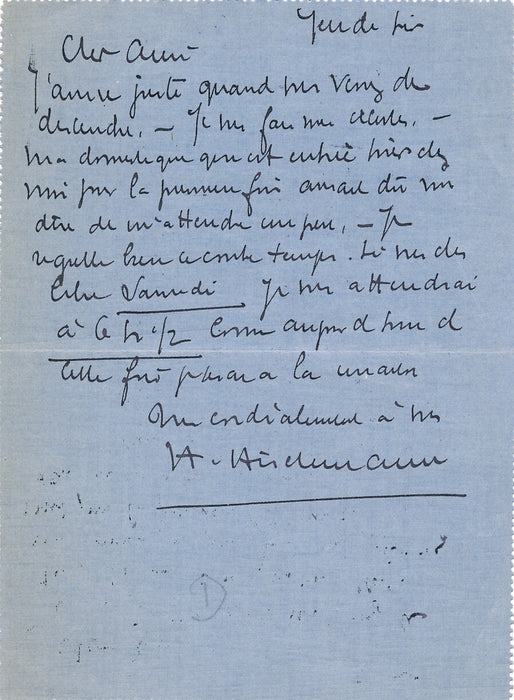 Jeudi soir
Cher Ami
J'arrive juste quand vous venez de
descendre. — Je vous fais mes excuses. —
ma domestique qui est entrée hier chez
moi pour la première fois aurait dû vous
dire de m'attendre un peu. — Je
regrette bien ce contre temps. Si vous êtes
libre Samedi Je vous attendrai
à 6 h 1/2 comme aujourd'hui et
cette fois je serai à la maison
cordialement à vous
D